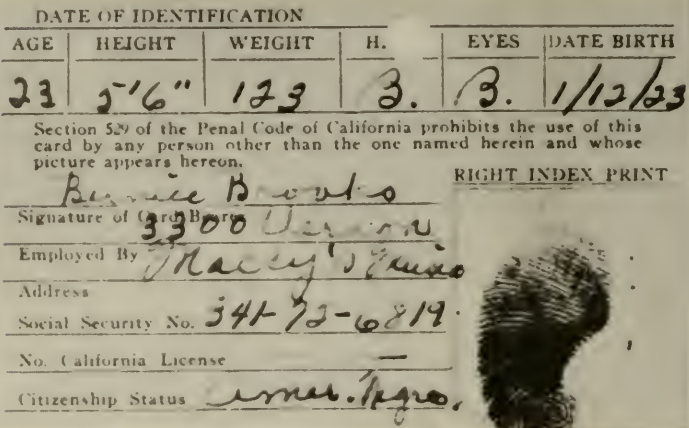 DATE OF IDENTIFICATION
AGE HEIGHT WEIGHT H. EYES DATE BIRTH
23 5'6" 123 B. B. 1/12/23
Section 529 of the Penal Code of California prohibits the use of this
card by any person other than the one named herein and whose
picture appears hereon.
RIGHT INDEX PRINT
Bernice Brooks
Signature of Card Bearer
3300 Vernon
Employed By
Address
Social Security No. 341-72-6819
No. California License —
Citizenship Status Amer. Negro.